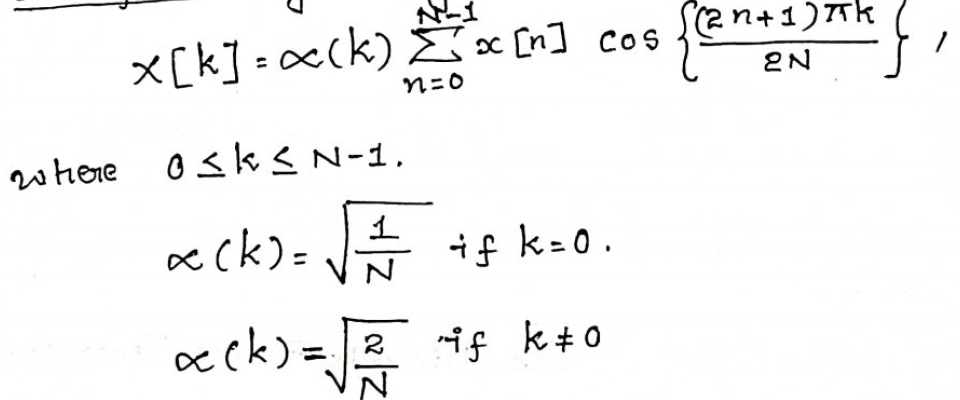 x[k] = ∝(k) ∑_{n=0}^{N-1} x[n] cos {\frac{(2n+1)πk}{2N}} ,
where 0 ≤ k ≤ N-1.
∝(k) = √\frac{1}{N} if k=0.
∝(k) = √\frac{2}{N} if k≠0